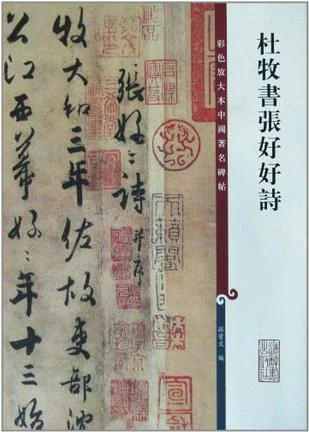 杜牧書張好好詩
彩色放大本中國著名碑帖
孫寶文 編
張好〻詩 并序
牧大和三年佐故吏部沈
公江西幕好〻年十三始
天籟閣